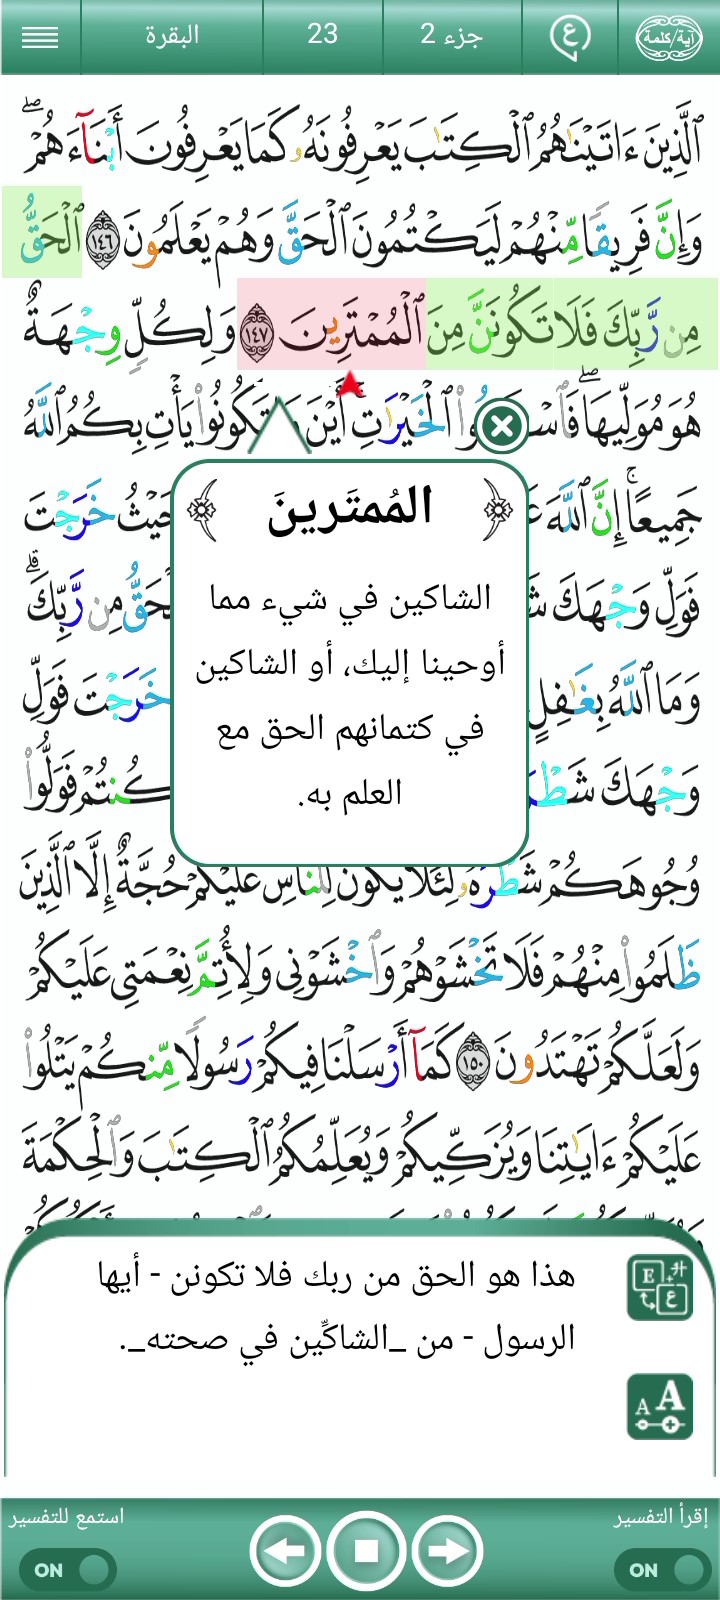 آية/كلمة
ع
جزء 2
23
البقرة
ٱلَّذِينَ ءَاتَيْنَٰهُمُ ٱلْكِتَٰبَ يَعْرِفُونَهُۥ كَمَا يَعْرِفُونَ أَبْنَآءَهُمْۖ
وَإِنَّ فَرِيقًا مِّنْهُمْ لَيَكْتُمُونَ ٱلْحَقَّ وَهُمْ يَعْلَمُونَ ١٤٦ ٱلْحَقُّ
مِن رَّبِّكَ فَلَا تَكُونَنَّ مِنَ ٱلْمُمْتَرِينَ ١٤٧ وَلِكُلٍّ وِجْهَةٌ
هُوَ مُوَلِّيهَاۖ ٱلْخَيْرَٰتِ أَيْنَ تَكُونُوا۟ يَأْتِ بِكُمُ ٱللَّهُ
جَمِيعًاۚ إِنَّ ٱللَّهَ حَيْثُ خَرَجْتَ
فَوَلِّ وَجْهَكَ مِن رَّبِّكَۗ
وَمَا ٱللَّهُ بِغَٰفِلٍ خَرَجْتَ فَوَلِّ
وَجْهَكَ كُنتُمْ فَوَلُّوا۟
وُجُوهَكُمْ شَطْرَهُۥ لِئَلَّا يَكُونَ لِلنَّاسِ عَلَيْكُمْ حُجَّةٌ إِلَّا ٱلَّذِينَ
ظَلَمُوا۟ مِنْهُمْ فَلَا تَخْشَوْهُمْ وَٱخْشَوْنِى وَلِأُتِمَّ نِعْمَتِى عَلَيْكُمْ
وَلَعَلَّكُمْ تَهْتَدُونَ ١٥٠ كَمَآ أَرْسَلْنَا فِيكُمْ رَسُولًا مِّنكُمْ يَتْلُوا۟
عَلَيْكُمْ ءَايَٰتِنَا وَيُزَكِّيكُمْ وَيُعَلِّمُكُمُ ٱلْكِتَٰبَ وَٱلْحِكْمَةَ
المُمتَرينَ
الشاكين في شيء مما
أوحينا إليك، أو الشاكين
في كتمانهم الحق مع
العلم به.
هذا هو الحق من ربك فلا تكونن - أيها
الرسول - من _الشاكِّين في صحته_.
E ع
A A
إقرأ التفسير
استمع للتفسير
ON
ON